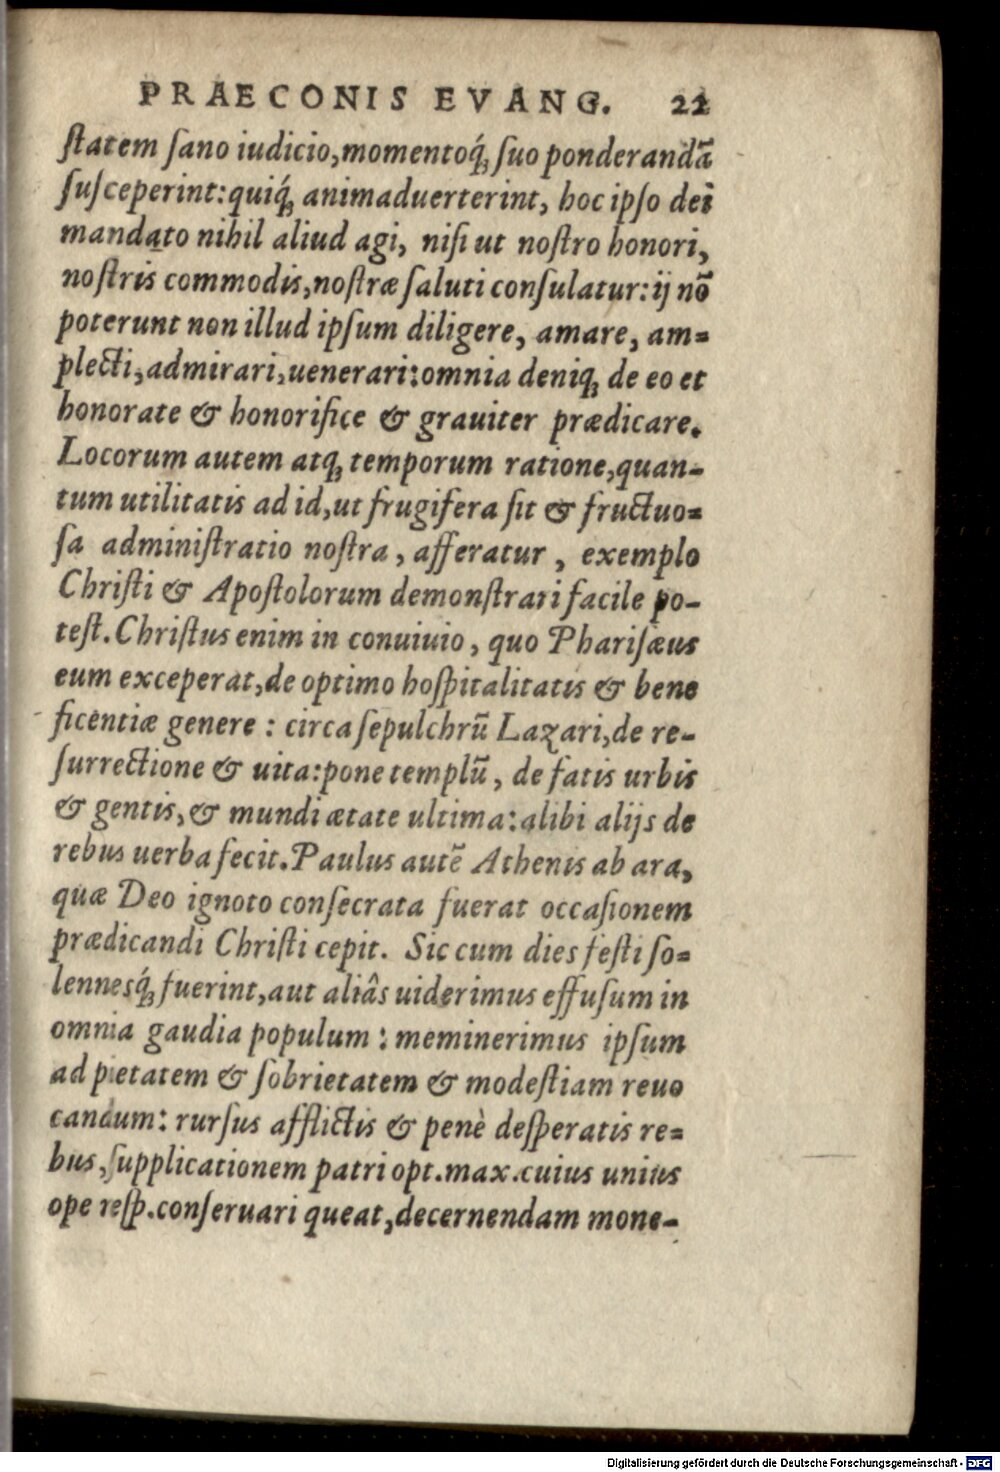 PRAECONIS EVANG. 22
ſtatem ſano iudicio,momentoq́ꝫ ſuo ponderandā
ſuſceperint:quiq́ꝫ animaduerterint, hoc ipſo dei
mandato nihil aliud agi, niſi ut noſtro honori,
noſtris commodis,noſtræ ſaluti conſulatur:ij nō
poterunt non illud ipſum diligere, amare, am-
plecti,admirari,uenerari:omnia deniqꝫ de eo et
honorate & honorifice & grauiter prædicare.
Locorum autem atqꝫ temporum ratione,quan-
tum utilitatis ad id,ut frugifera ſit & fructuo-
ſa adminiſtratio noſtra, afferatur, exemplo
Chriſti & Apoſtolorum demonſtrari facile po-
teſt.Chriſtus enim in conuiuio, quo Phariſæus
eum exceperat,de optimo hoſpitalitatis & bene
ficentiæ genere: circa ſepulchrū Lazari,de re-
ſurrectione & uita:pone templū, de fatis urbis
& gentis,& mundi ætate ultima:alibi alijs de
rebus uerba fecit.Paulus autē Athenis ab ara,
quæ Deo ignoto conſecrata fuerat occaſionem
prædicandi Chriſti cepit. Sic cum dies feſti ſo-
lennesq́ꝫ fuerint,aut aliâs uiderimus effuſum in
omnia gaudia populum: meminerimus ipſum
ad pietatem & ſobrietatem & modeſtiam reuo
candum: rurſus afflictis & penè deſperatis re-
bus,ſupplicationem patri opt.max.cuius unius
ope reſp.conſeruari queat,decernendam mone-
Digitalisierung gefördert durch die Deutsche Forschungsgemeinschaft - DFG